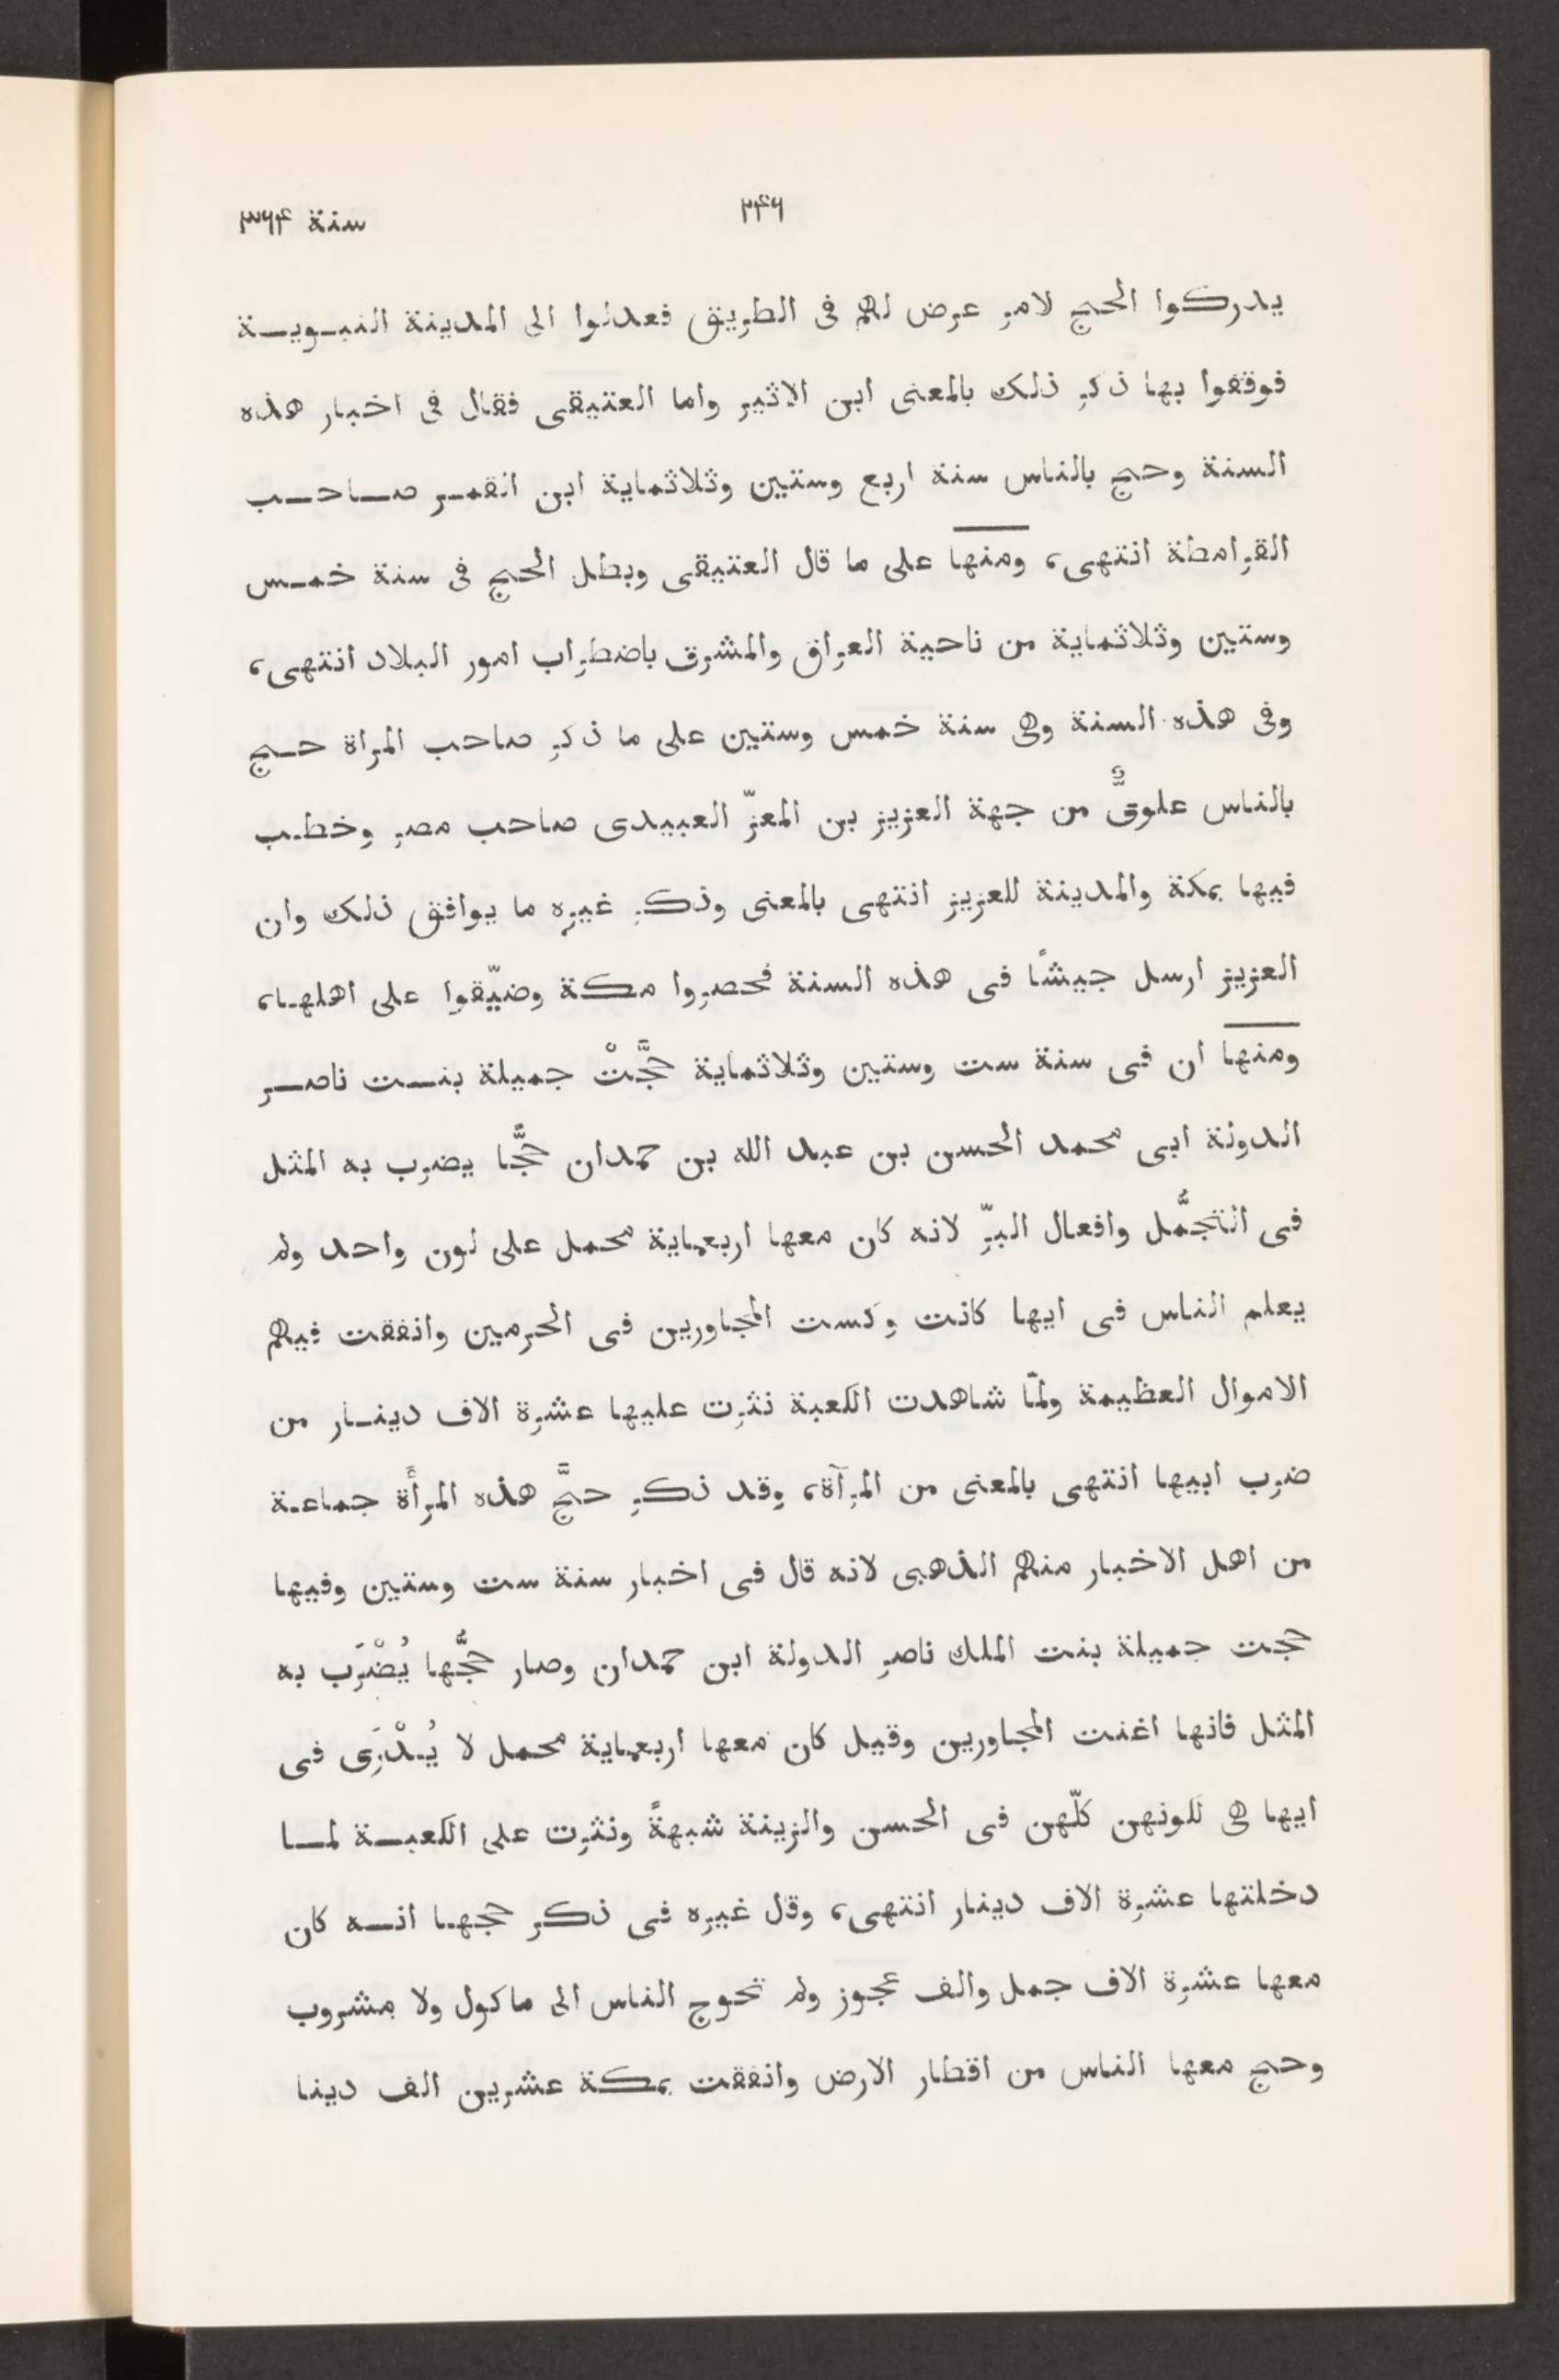 ٢٤٦ سنة ٣٦٤
يدركوا الحج لامر عرض لهم فى الطريق فعدلوا الى المدينة النبوية
فوقفوا بها ذكر ذلك بالمعنى ابن الاثير واما العتيقى فقال فى اخبار هذه
السنة وحج بالناس سنة اربع وستين وثلاثماية ابن القمر صاحب
القرامطة انتهى، ومنها على ما قال العتيقى وبطل الحج فى سنة خمس
وستين وثلاثماية من ناحية العراق والمشرق باضطراب امور البلاد انتهى،
وفى هذه السنة وهى سنة خمس وستين على ما ذكر صاحب المراة حج
بالناس علوىٌّ من جهة العزيز بن المعزّ العبيدى صاحب مصر وخطب
فيها بمكة والمدينة للعزيز انتهى بالمعنى وذكر غيره ما يوافق ذلك وان
العزيز ارسل جيشًا فى هذه السنة فحصروا مكة وضيّقوا على اهلها،
ومنها ان فى سنة ست وستين وثلاثماية حَجَّتْ جميلة بنت ناصر
الدولة ابى محمد الحسن بن عبد الله بن حمدان حَجًّا يضرب به المثل
فى التجمُّل وافعال البرّ لانه كان معها اربعماية محمل على لون واحد ولم
يعلم الناس فى ايها كانت وكست المجاورين فى الحرمين وانفقت فيهم
الاموال العظيمة ولمّا شاهدت الكعبة نثرت عليها عشرة الاف دينار من
ضرب ابيها انتهى بالمعنى من المرآة، وقد ذكر حجَّ هذه المرأَة جماعة
من اهل الاخبار منهم الذهبى لانه قال فى اخبار سنة ست وستين وفيها
حجت جميلة بنت الملك ناصر الدولة ابن حمدان وصار حَجُّها يُضْرَب به
المثل فانها اغنت المجاورين وقيل كان معها اربعماية محمل لا يُدْرَى فى
ايها هى لكونهن كلّهن فى الحسن والزينة شبهةً ونثرت على الكعبة لما
دخلتها عشرة الاف دينار انتهى، وقال غيره فى ذكر حجها انه كان
معها عشرة الاف جمل والف عجوز ولم تحوج الناس الى ماكول ولا مشروب
وحج معها الناس من اقطار الارض وانفقت بمكة عشرين الف دينا